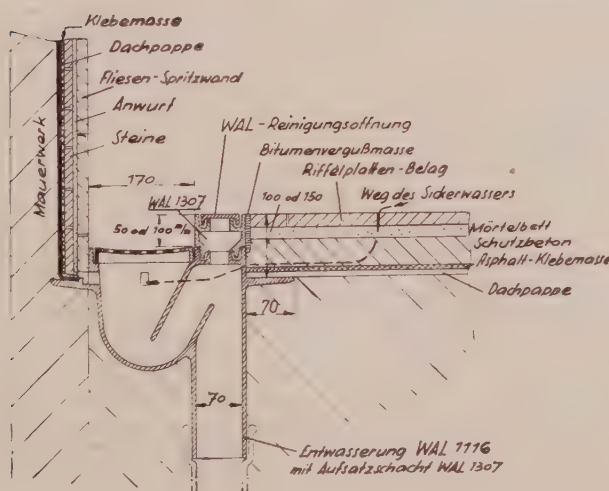 Klebemasse
Dachpappe
Fliesen-Spritzwand
Anwurf
Steine
Mauerwerk
WAL-Reinigungsöffnung
Bitumenvergußmasse
Riffelplatten-Belag
170
WAL 1307
100 od 150
Weg des Sickerwassers
50 od 100 m/m
Mörtelbett
Schutzbeton
Asphalt-Klebemasse
Dachpappe
70
70
Entwässerung WAL 1116
mit Aufsatzschacht WAL 1307